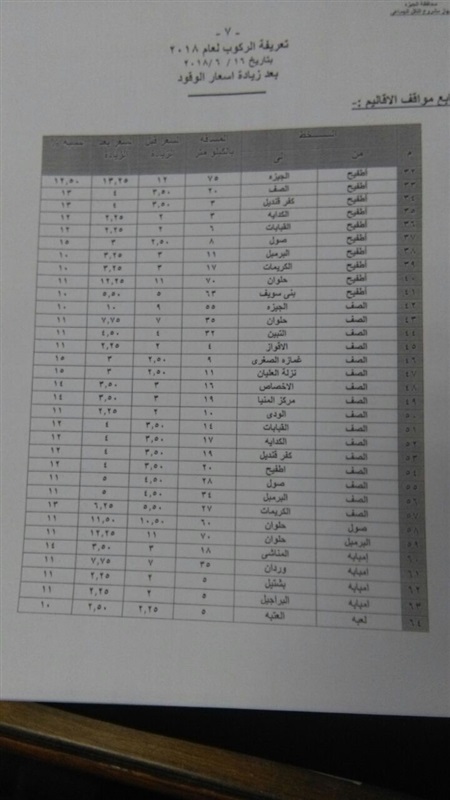 محافظة الجيزة
- ٧ -
تعريفة الركوب لعام ٢٠١٨
بتاريخ ١٦ / ٦ / ٢٠١٨
بعد زيادة اسعار الوقود
مواقف الاقاليم :-
م من الى المسافة بالكيلو متر السعر قبل الزيادة السعر بعد الزيادة
٣٢ أطفيح الجيزه ٧٥ ١٢ ١٣,٢٥ ١٢,٥٠
٣٣ أطفيح الصف ٢٠ ٣,٥٠ ٤ ١٣
٣٤ أطفيح كفر قنديل ٣ ٣,٥٠ ٤ ١٣
٣٥ أطفيح الكدايه ٣ ٢ ٢,٢٥ ١٢
٣٦ أطفيح القبابات ٦ ٢ ٢,٢٥ ١٢
٣٧ أطفيح صول ٨ ٢,٥٠ ٣ ١٥
٣٨ أطفيح البرمبل ١١ ٣ ٣,٢٥ ١٠
٣٩ أطفيح الكريمات ١٧ ٣ ٣,٢٥ ١٠
٤٠ أطفيح حلوان ٧٠ ١١ ١٢,٢٥ ١١
٤١ أطفيح بنى سويف ٦٣ ٥ ٥,٥٠ ١٠
٤٢ الصف الجيزه ٥٥ ٩ ١٠ ١٠
٤٣ الصف حلوان ٣٥ ٧ ٧,٧٥ ١١
٤٤ الصف التبين ٣٢ ٤ ٤,٥٠ ١١
٤٥ الصف الاقواز ٤ ٢ ٢,٢٥ ١١
٤٦ الصف غمازه الصغرى ٩ ٢,٥٠ ٣ ١٥
٤٧ الصف نزلة العليان ١١ ٢,٥٠ ٣ ١٥
٤٨ الصف الاخصاص ١٦ ٣ ٣,٥٠ ١٤
٤٩ الصف مركز المنيا ١٩ ٣ ٣,٥٠ ١٤
٥٠ الصف الودى ١٠ ٢ ٢,٢٥ ١١
٥١ الصف القبابات ١٤ ٣,٥٠ ٤ ١٢
٥٢ الصف الكدايه ١٧ ٣,٥٠ ٤ ١٢
٥٣ الصف كفر قنديل ١٩ ٣,٥٠ ٤ ١٢
٥٤ الصف اطفيح ٢٠ ٣,٥٠ ٤ ١٢
٥٥ الصف صول ٢٨ ٤,٥٠ ٥ ١١
٥٦ الصف البرمبل ٣٤ ٤,٥٠ ٥ ١١
٥٧ الصف الكريمات ٢٧ ٥,٥٠ ٦,٢٥ ١٣
٥٨ صول حلوان ٦٠ ١٠,٥٠ ١١,٥٠ ١١
٥٩ البرمبل حلوان ٧٠ ١١ ١٢,٢٥ ١١
٦٠ إمبابه المناشى ١٨ ٣ ٣,٥٠ ١٤
٦١ إمبابه وردان ٣٥ ٧ ٧,٧٥ ١١
٦٢ إمبابه بشتيل ٥ ٢ ٢,٢٥ ١١
٦٣ امبابه البراجيل ٥ ٢ ٢,٢٥ ١١
٦٤ لعبه العتبه ٥ ٢,٢٥ ٢,٥٠ ١٠